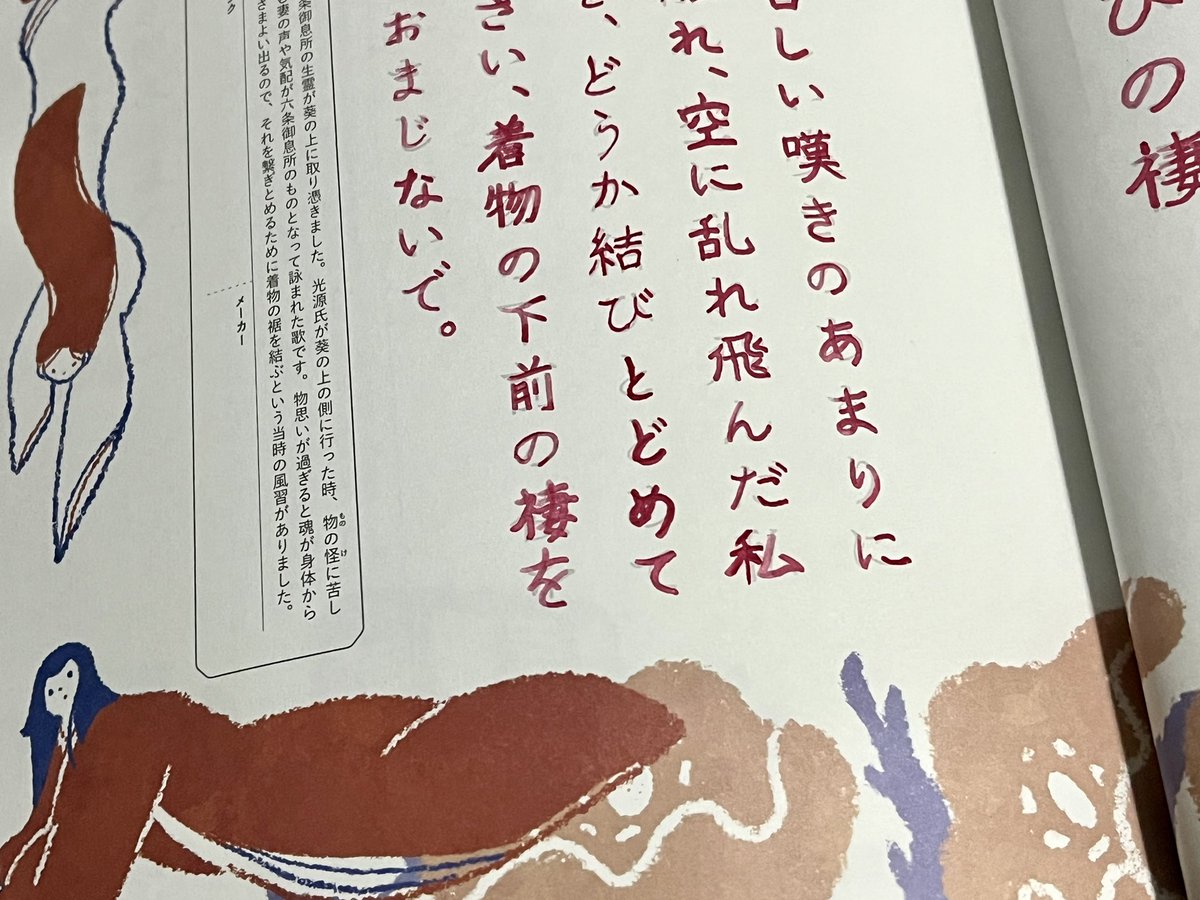 びの褄
しい嘆きのあまりに
れ、空に乱れ飛んだ私
、どうか結びとどめて
さい、着物の下前の褄を
おまじないで。
条御息所の生霊が葵の上に取り憑きました。光源氏が葵の上の側に行った時、物の怪に苦し
妻の声や気配が六条御息所のものとなって詠まれた歌です。物思いが過ぎると魂が身体から
さまよい出るので、それを繋ぎとめるために着物の裾を結ぶという当時の風習がありました。
メーカー
ク